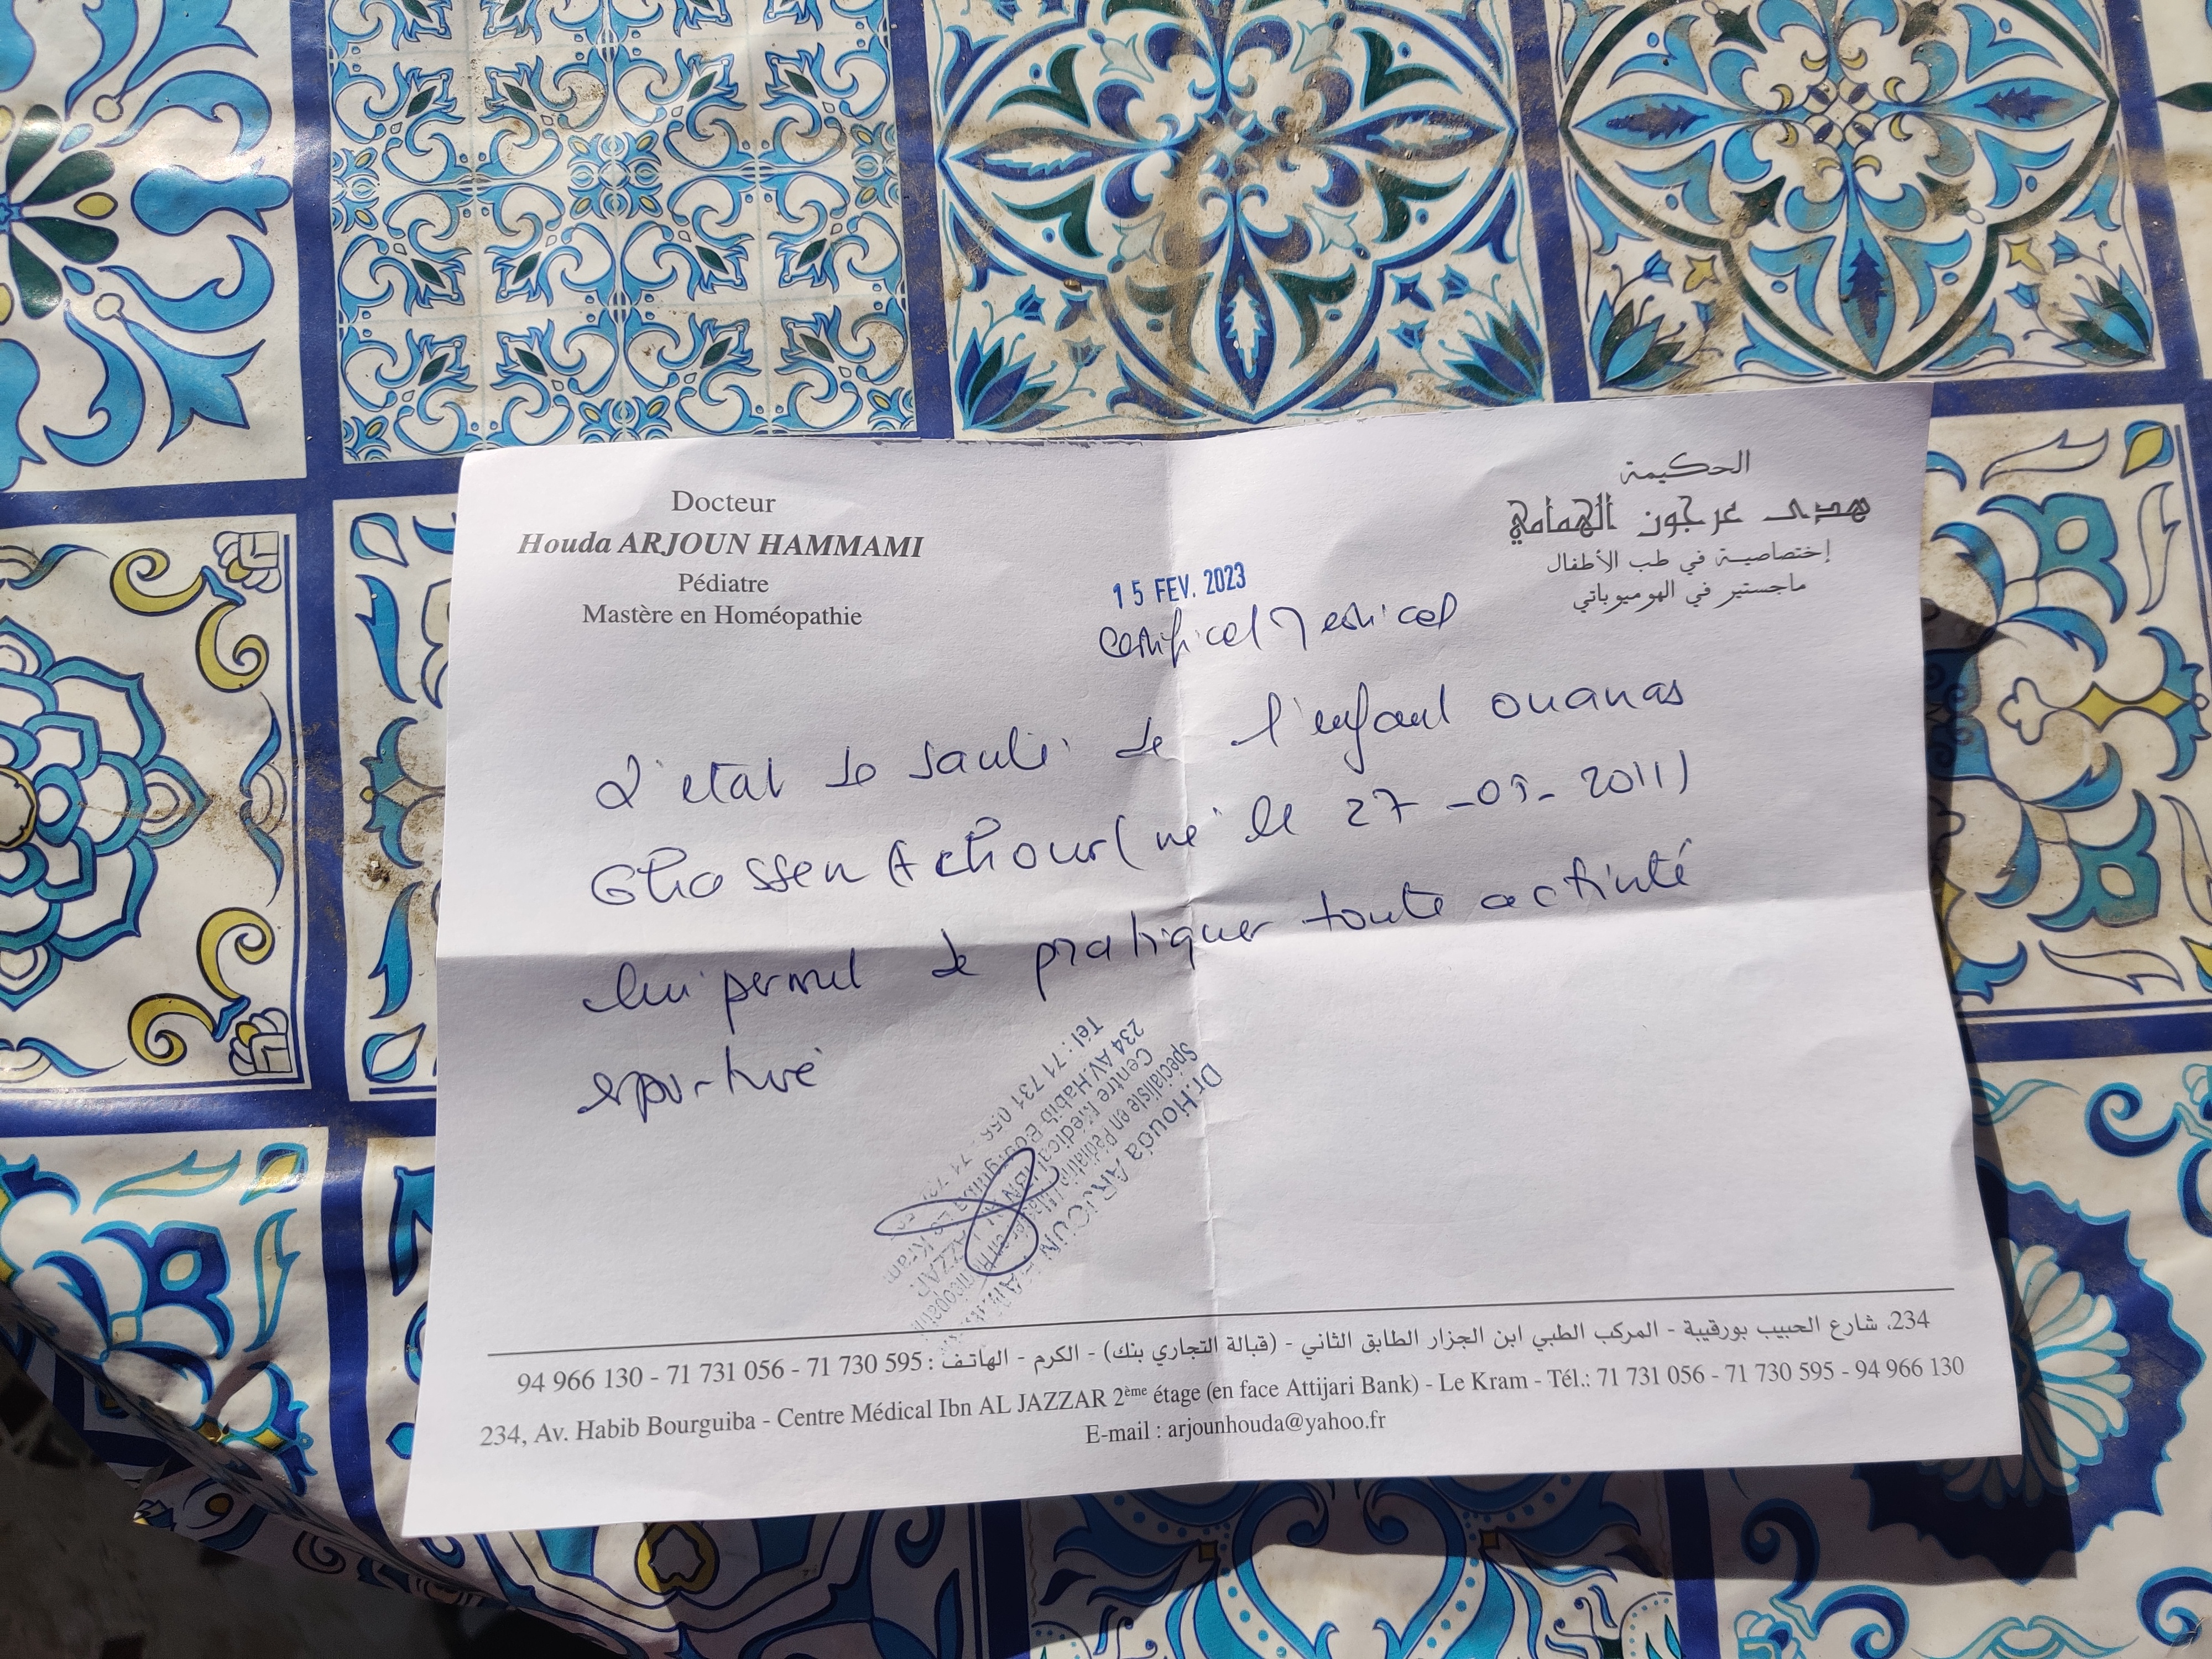 Docteur
Houda ARJOUN HAMMAMI
Pédiatre
Mastère en Homéopathie
الحكيمة
هدى عرجون الهمامي
إختصاصية في طب الأطفال
ماجستير في الهوميوباتي
15 FEV. 2023
Certificat Medical
L'état de santé de l'enfant ouanas
Ghassen Achour (né le 27-05-2011)
lui permet de pratiquer toute activité
sportive
Dr. Houda ARJOUN
Spécialiste en Pédiatrie
Centre Médical IBN AL JAZZAR
234 AV. Habib Bourguiba Le Kram
Tél : 71 731 056
234، شارع الحبيب بورقيبة - المركب الطبي ابن الجزار الطابق الثاني - (قبالة التجاري بنك) - الكرم - الهاتف : 595 730 71 - 056 731 71 - 130 966 94
234, Av. Habib Bourguiba - Centre Médical Ibn AL JAZZAR 2ème étage (en face Attijari Bank) - Le Kram - Tél.: 71 731 056 - 71 730 595 - 94 966 130
E-mail : arjounhouda@yahoo.fr